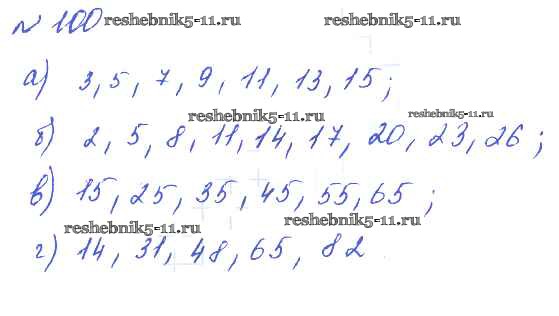 № 100 reshebnik5-11.ru reshebnik5-11.ru
а) 3, 5, 7, 9, 11, 13, 15;
reshebnik5-11.ru reshebnik5-11.ru
б) 2, 5, 8, 11, 14, 17, 20, 23, 26;
в) 15, 25, 35, 45, 55, 65;
reshebnik5-11.ru reshebnik5-11.ru
г) 14, 31, 48, 65, 82